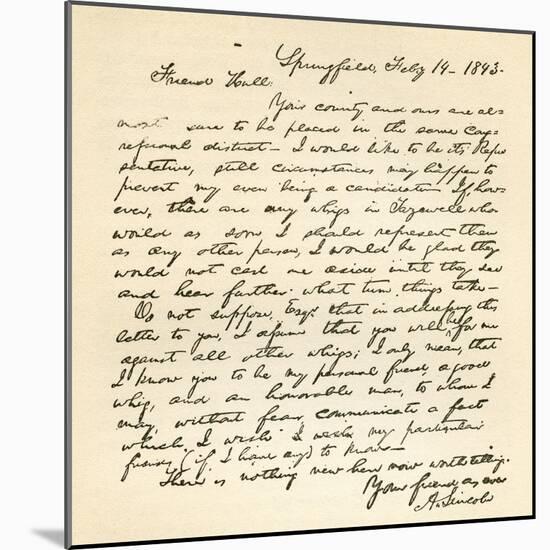 Springfield, Feby 14 - 1843.
Friend Hull:
Your county and ours are al-
most sure to be placed in the same Con-
gressional district - I would like to be its Repre
sentative, still circumstances may happen to
prevent my even being a candidate - If, how-
ever, there are any whigs in Tazewell who
would as soon I should represent them
as any other person, I would be glad they
would not cast me aside until they see
and hear further what turn things take -
Do not suppose, Esqr. that in addressing this
letter to you, I assume that you will be for me
against all other whigs; I only mean, that
I know you to be my personal friend, a good
whig, and an honorable man, to whom I
may, without fear, communicate a fact
which I wish I wish my particular
friends, (if I have any) to know -
There is nothing new here now worth telling.
Your friend as ever
A. Lincoln